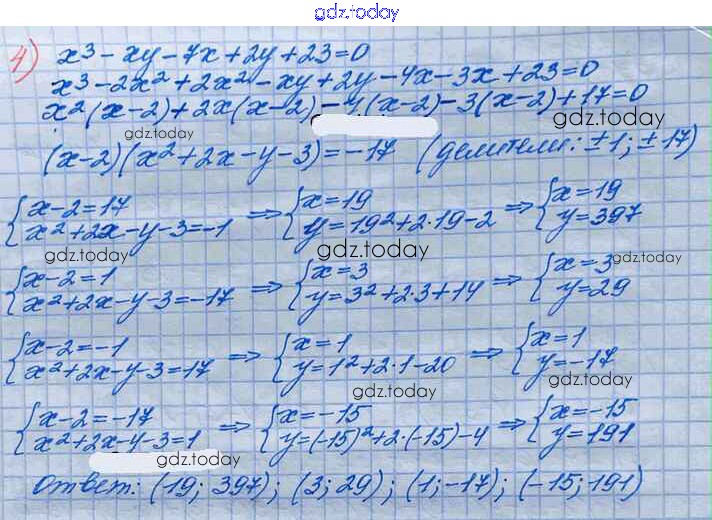 gdz.today
4) x³ - xy - 7x + 2y + 23 = 0
x³ - 2x² + 2x² - xy + 2y - 4x - 3x + 23 = 0
x²(x-2) + 2x(x-2) - y(x-2) - 3(x-2) + 17 = 0
gdz.today gdz.today
(x-2)(x² + 2x - y - 3) = -17 (делители: ±1; ±17)
{ x-2=17 ⇒ { x=19 ⇒ { x=19
x²+2x-y-3=-1 y=19²+2·19-2 y=397
gdz.today gdz.today gdz.today
{ x-2=1 ⇒ { x=3 ⇒ { x=3
x²+2x-y-3=-17 y=3²+2·3+14 y=29
{ x-2=-1 ⇒ { x=1 ⇒ { x=1
x²+2x-y-3=17 y=1²+2·1-20 y=-17
gdz.today gdz.today
{ x-2=-17 ⇒ { x=-15 ⇒ { x=-15
x²+2x-y-3=1 y=(-15)²+2·(-15)-4 y=191
gdz.today
Ответ: (19; 397); (3; 29); (1; -17); (-15; 191)